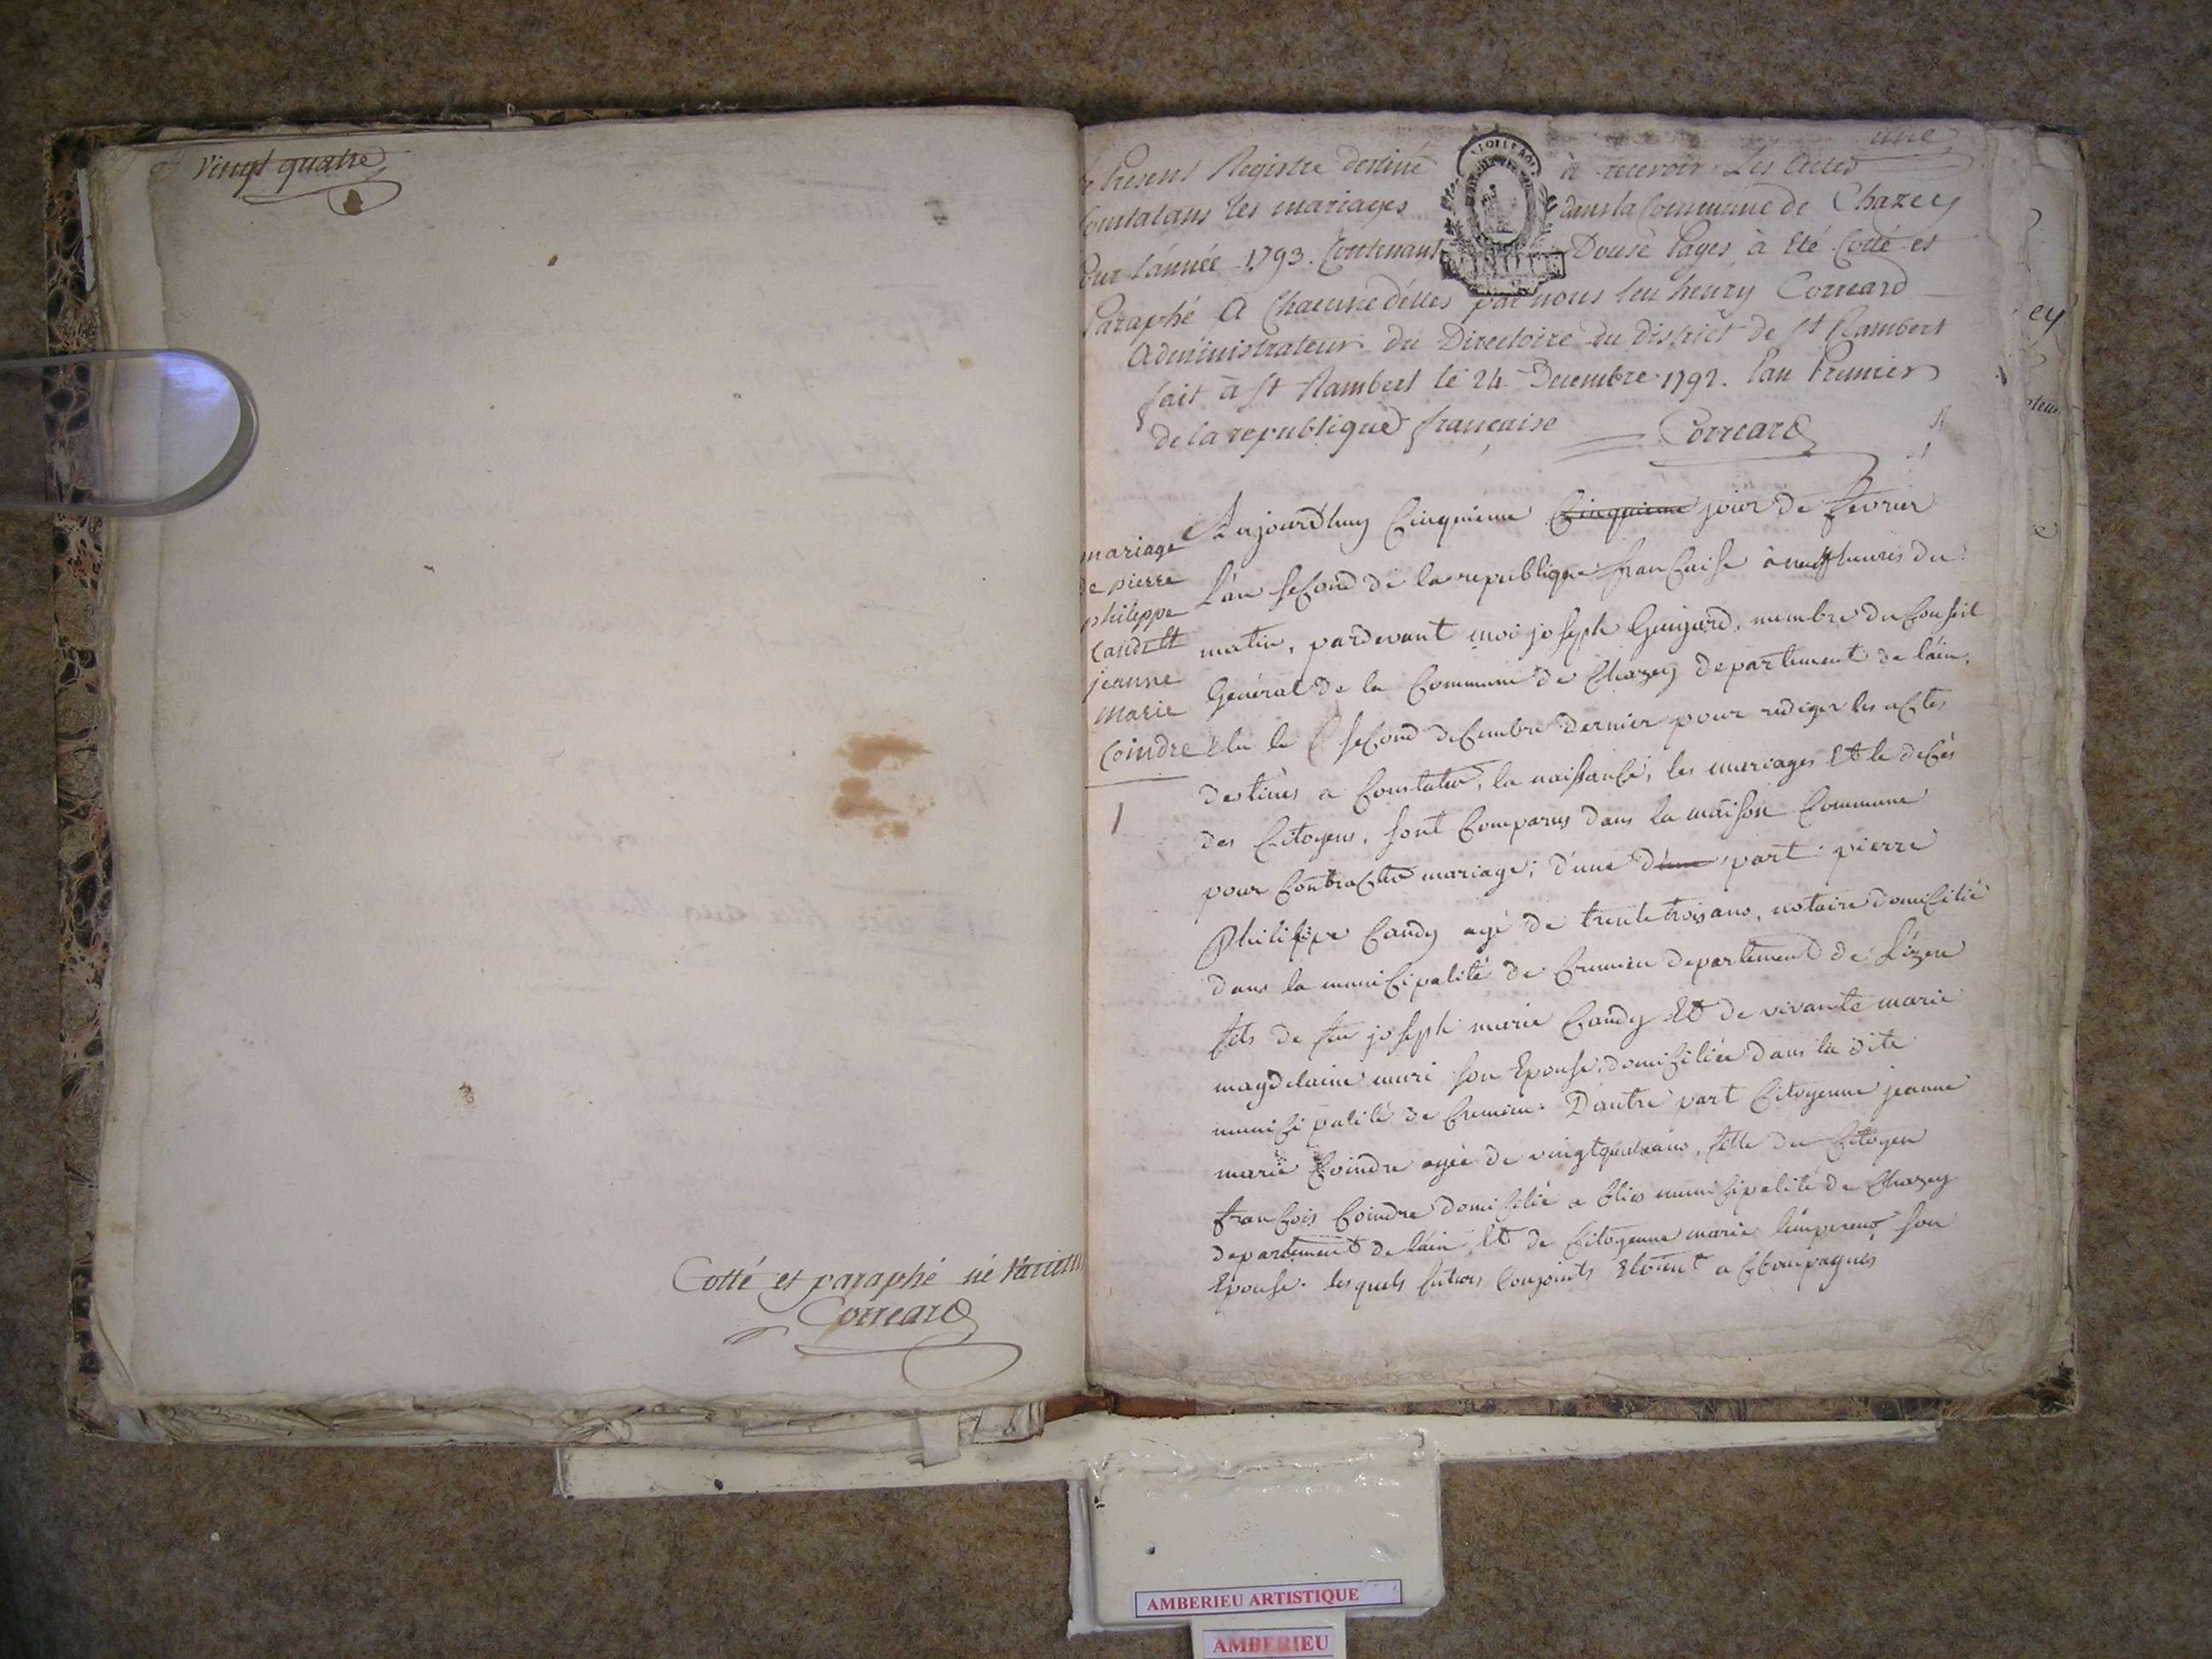 vingt quatre
Cotté et paraphé né varietur
Correard
une
le Present Registre destiné à recevoir Les actes
Constatans les mariages dans la Commune de Chazey
Pour l'année 1793. Contenant Douse Pages à été Cotté et
Paraphé a Chacune d'elles par nous leu henry Correard
administrateur du Directoire du district de st Rambert
fait à st Rambert le 24 Decembre 1792. l'an Premier
de la republique française Correard
mariage
de pierre
philippe
candi Et
jeanne
marie
Coindre
1
Aujourd'huy Cinquieme Cinquieme jour de fevrier
L'an second de la republique française à neuf heures du
matin, pardevant moi joseph Guigard, membre du Conseil
Général de la Commune de Chazey departement de l'ain,
élu le second decembre dernier pour rediger les actes
destinés a Constater, la naissance, les mariages Et le decès
des Citoyens, sont Comparus dans la maison Commune
pour Contracter mariage; d'une d'une part pierre
Philippe Candy agé de trente trois ans, notaire domicilié
dans la municipalité de Cremieu departement de L'izere
fils de feu joseph marie Candy Et de vivante marie
magdelaine muri son Epouse, domiciliée dans la dite
municipalité de Cremieu. D'autre part Citoyenne jeanne
marie Coindre agée de vingt quatre ans, fille du Citoyen
françois Coindre domicilié a blies municipalité de Chazey
departement de l'ain Et de Citoyenne marie l'empereur son
Epouse. lesquels futurs Conjoints Etoient accompagnés
ey
AMBERIEU ARTISTIQUE
AMBERIEU